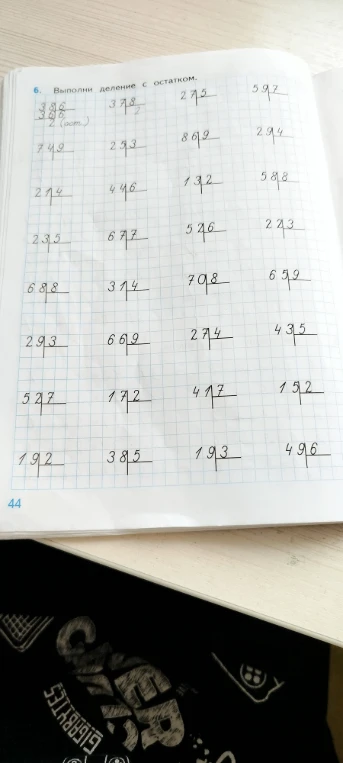 6. Выполни деление с остатком.
38|6 37|8 27|5 59|7
36|6 2
2 (ост.)
74|9 25|3 86|9 29|4
21|4 44|6 13|2 58|8
23|5 67|7 52|6 22|3
68|8 31|4 70|8 65|9
29|3 66|9 27|4 43|5
52|7 17|2 41|7 15|2
19|2 38|5 19|3 49|6
44